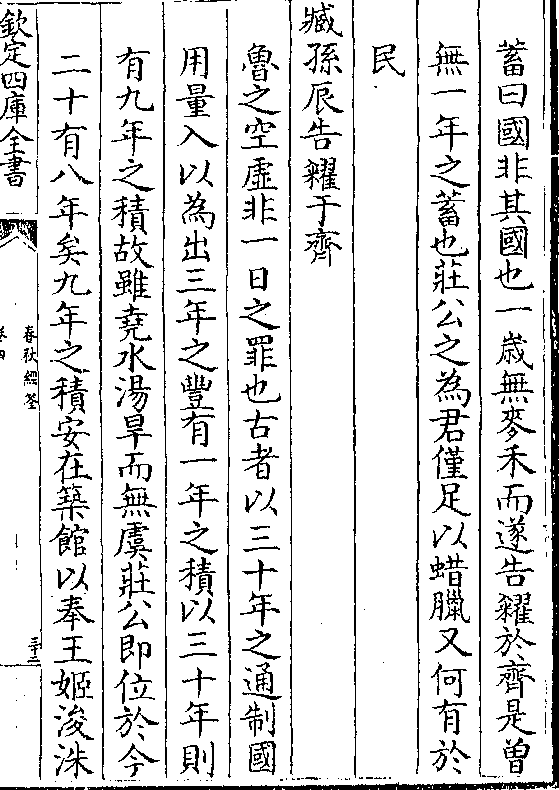 蓄曰國非其國也一歲無麥禾而遂告糴於齊是曽
無一年之蓄也莊公之為君僅足以蜡臘又何有於
民
臧孫辰告糴于齊
魯之空虛非一日之罪也古者以三十年之通制國
用量入以為出三年之豐有一年之積以三十年則
有九年之積故雖堯水湯旱而無虞莊公即位於今
二十有八年矣九年之積安在築館以奉王姬浚洙
欽定四庫全書
春秋經筌
卷四
三十三